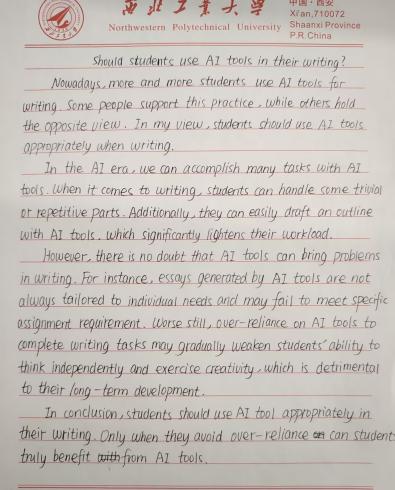 西北工业大学
Northwestern Polytechnical University
中国·西安
Xi'an,710072
Shaanxi Province
P.R.China
Should students use AI tools in their writing?
Nowadays, more and more students use AI tools for
writing. Some people support this practice, while others hold
the opposite view. In my view, students should use AI tools
appropriately when writing.
In the AI era, we can accomplish many tasks with AI
tools. When it comes to writing, students can handle some trivial
or repetitive parts. Additionally, they can easily draft an outline
with AI tools, which significantly lightens their workload.
However, there is no doubt that AI tools can bring problems
in writing. For instance, essays generated by AI tools are not
always tailored to individual needs and may fail to meet specific
assignment requirement. Worse still, over-reliance on AI tools to
complete writing tasks may gradually weaken students' ability to
think independently and exercise creativity, which is detrimental
to their long-term development.
In conclusion, students should use AI tool appropriately in
their writing. Only when they avoid over-reliance on can students
truly benefit with from AI tools.